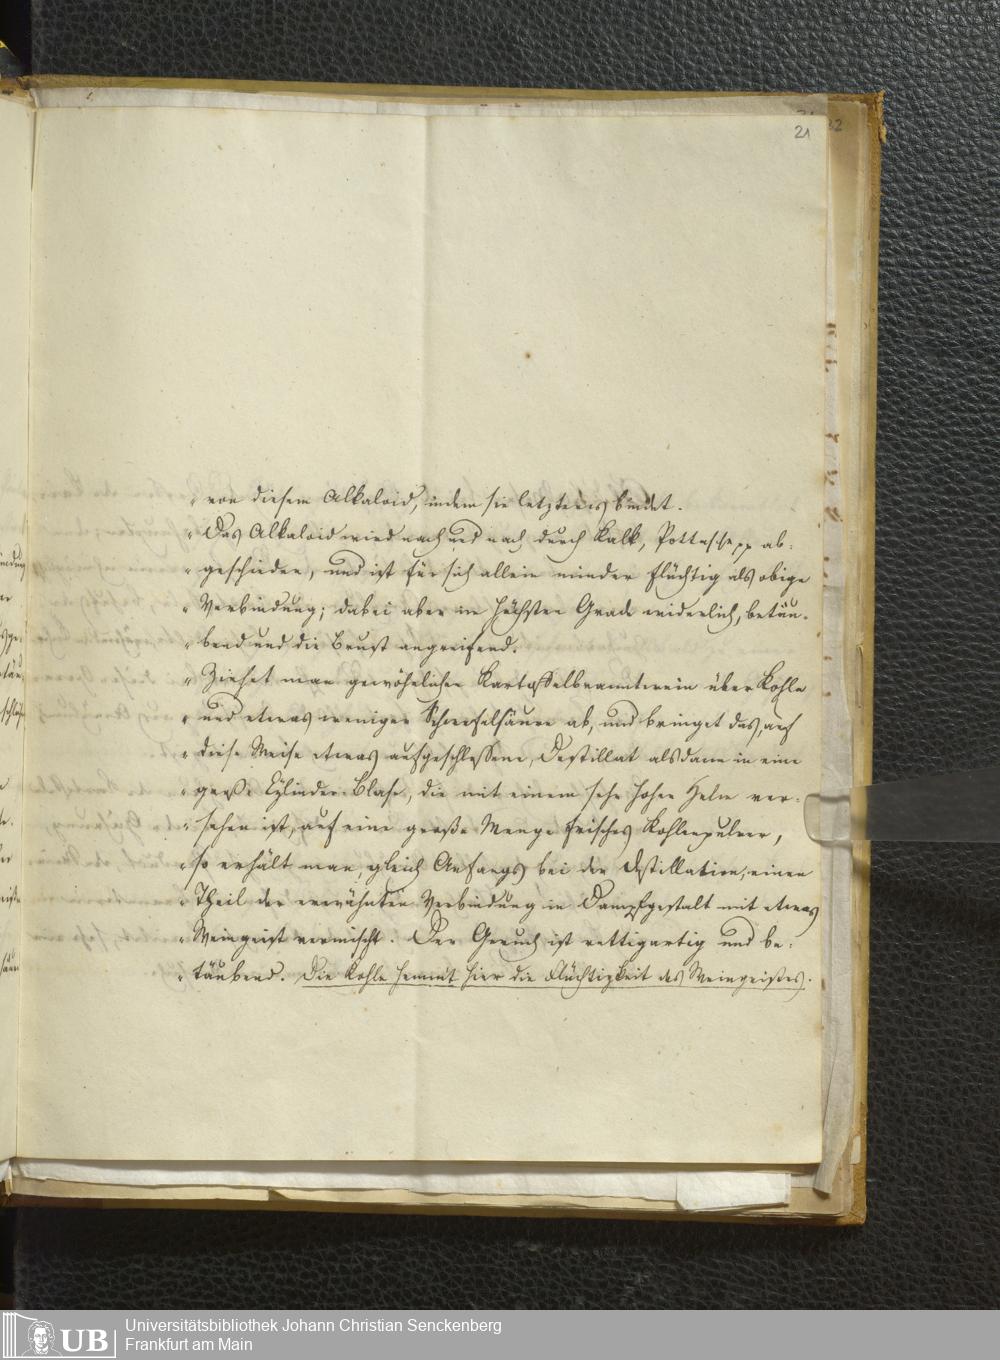 21
22
„ von diesem Alkaloid, indem sie letzteres bindet.
„ Das Alkaloid wird nach und nach durch Kalk, Pottasche pp ab-
„ geschieden, und ist für sich allein minder flüchtig als obige
„ Verbindung; dabei aber im höchsten Grade widerlich, betäu-
„ bend und die Brust angreifend.
„ Ziehet man gewöhnlichen Kartoffelbranntwein über Kohle
„ und etwas weniger Schwefelsäure ab, und bringet das, auf
„ diese Weise etwas aufgeschlossene, Destillat alsdann in eine
„ große Cylinder-Blase, die mit einem sehr hohen Helm ver-
„ sehen ist, auf eine große Menge frisches Kohlenpulver,
„ so erhält man, gleich Anfangs bei der Destillation, einen
„ Theil der erwähnten Verbindung in Dampfgestalt mit etwas
„ Weingeist vermischt. Der Geruch ist rettigartig und be-
„ täubend. Die Kohle hemmt hier die Flüchtigkeit des Weingeistes.
UB
Universitätsbibliothek Johann Christian Senckenberg
Frankfurt am Main